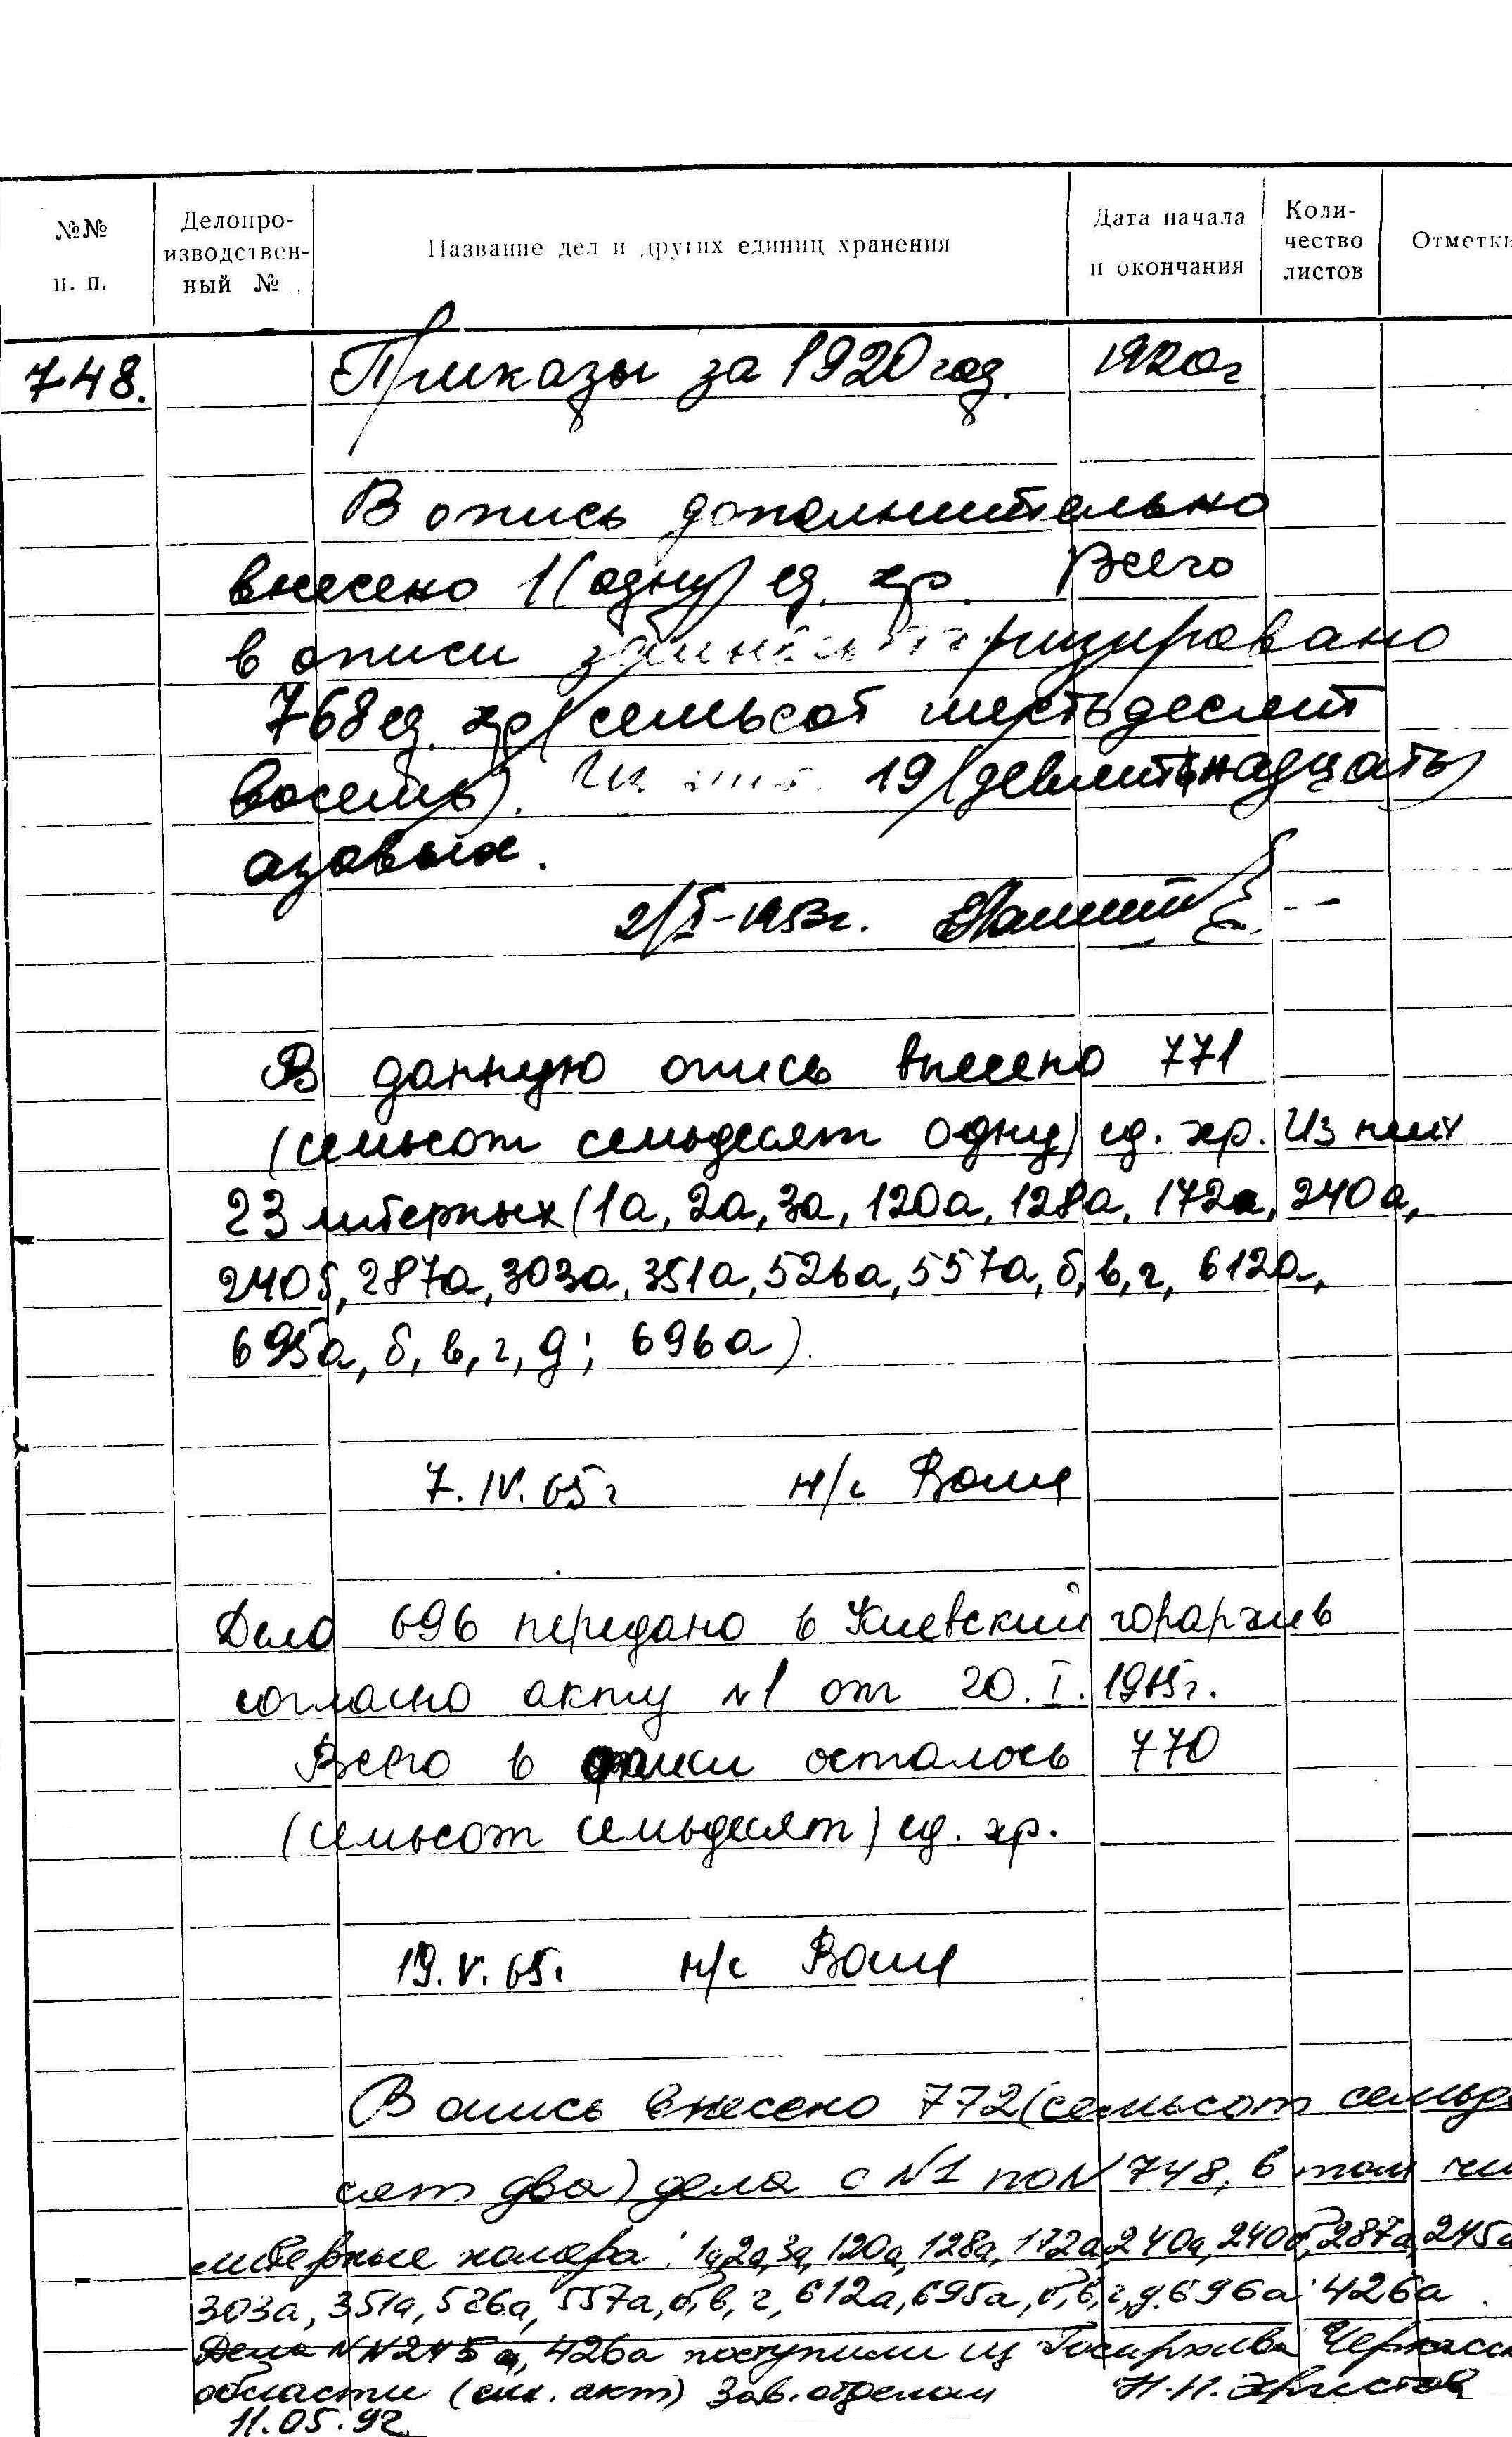 №№ п. п.
Делопро-изводствен-ный №
Название дел и других единиц хранения
Дата начала и окончания
Коли-чество листов
Отметки
748. Приказы за 1920 год. 1920 г
В опись дополнительно
внесено 1 (одну) ед. хр. Всего
в описи
768 ед. хр (семьсот шестьдесят
восемь). 19 (девятьнадцать)
азовых.
7. IV. 65 г н/с
В данную опись внесено 771
(семьсот семьдесят одну) ед. хр. Из них
23 литерных (1а, 2а, 3а, 120а, 128а, 172а, 240а,
240б, 287а, 303а, 351а, 526а, 557а, б, в, г, 612а,
695а, б, в, г, д; 696а).
Дело 696 передано в Киевский горархив
согласно акту №1 от 20. I. 1965 г.
Всего в описи осталось 770
(семьсот семьдесят) ед. хр.
19. V. 65 г н/с
В опись внесено 772 (семьсот семьде
сят два) дела с №1 по № 748, в том чи
литерные номера: 1а, 2а, 3а, 120а, 128а, 172а, 240а, 240б, 287а, 245а
303а, 351а, 526а, 557а, б, в, г, 612а, 695а, б, в, г, д, 696а 426а
Дела №№ 245а, 426а поступили из Госархива Черкасск
области (см. акт) Зав. отделом Н.Н. Христова
11.05.92